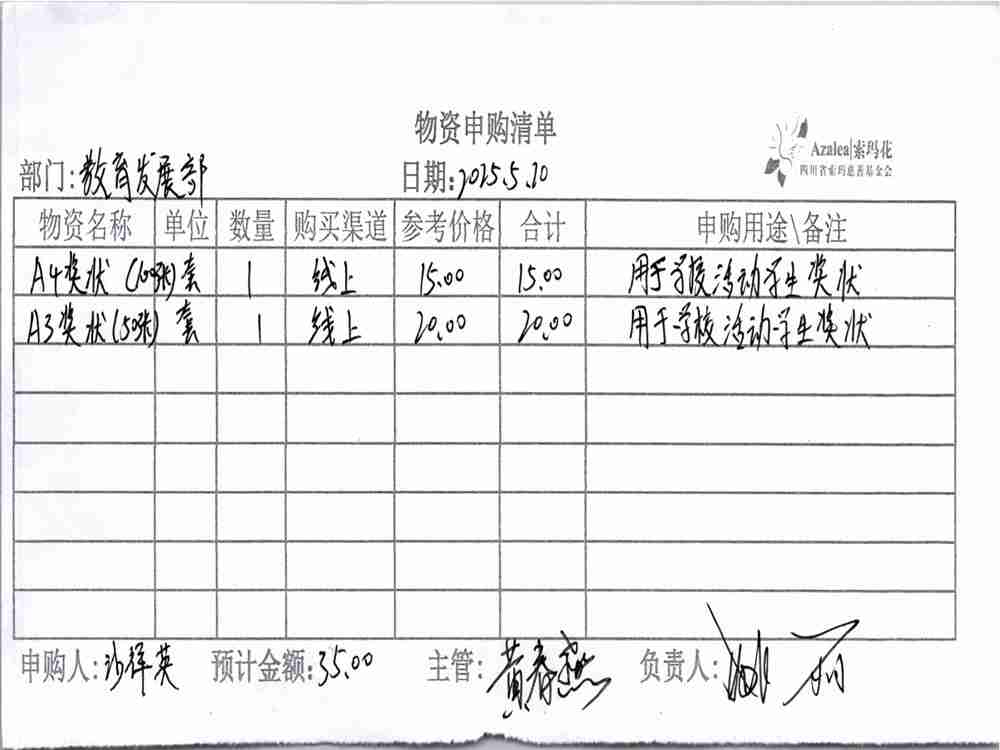 物资申购清单
Azalea|索玛花
四川省索玛慈善基金会
部门:教育发展部 日期:2025.5.20
物资名称 单位 数量 购买渠道 参考价格 合计 申购用途\备注
A4奖状(100张) 套 1 线上 15.00 15.00 用于学校活动学生奖状
A3奖状(50张) 套 1 线上 20.00 20.00 用于学校活动学生奖状
申购人:沙祥英 预计金额:35.00 主管:黄春燕 负责人: